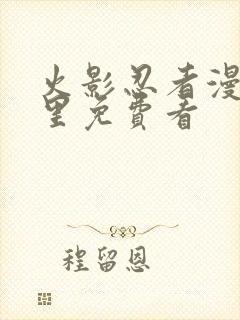 火影忍者漫
里免费看
程留恩